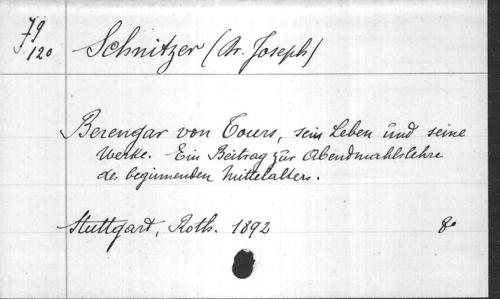 79
/120
Schnitzer (Dr. Joseph)
Berengar von Tours, sein Leben und seine
Werke. Ein Beitrag zur Abendmahlslehre
des beginnenden Mittelalters.
Stuttgart, Roth. 1892 8°